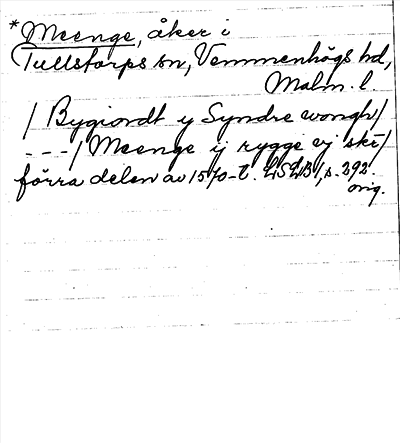 *Meenge, åker i
Tullstorps sn, Vemmenhögs hd,
Malm. l.
/ Bygiordt y Syndre wongh/
---/ Meenge ij rygge ej skr/
förra delen av 1570-t. LSLB1, s. 292.
orig.